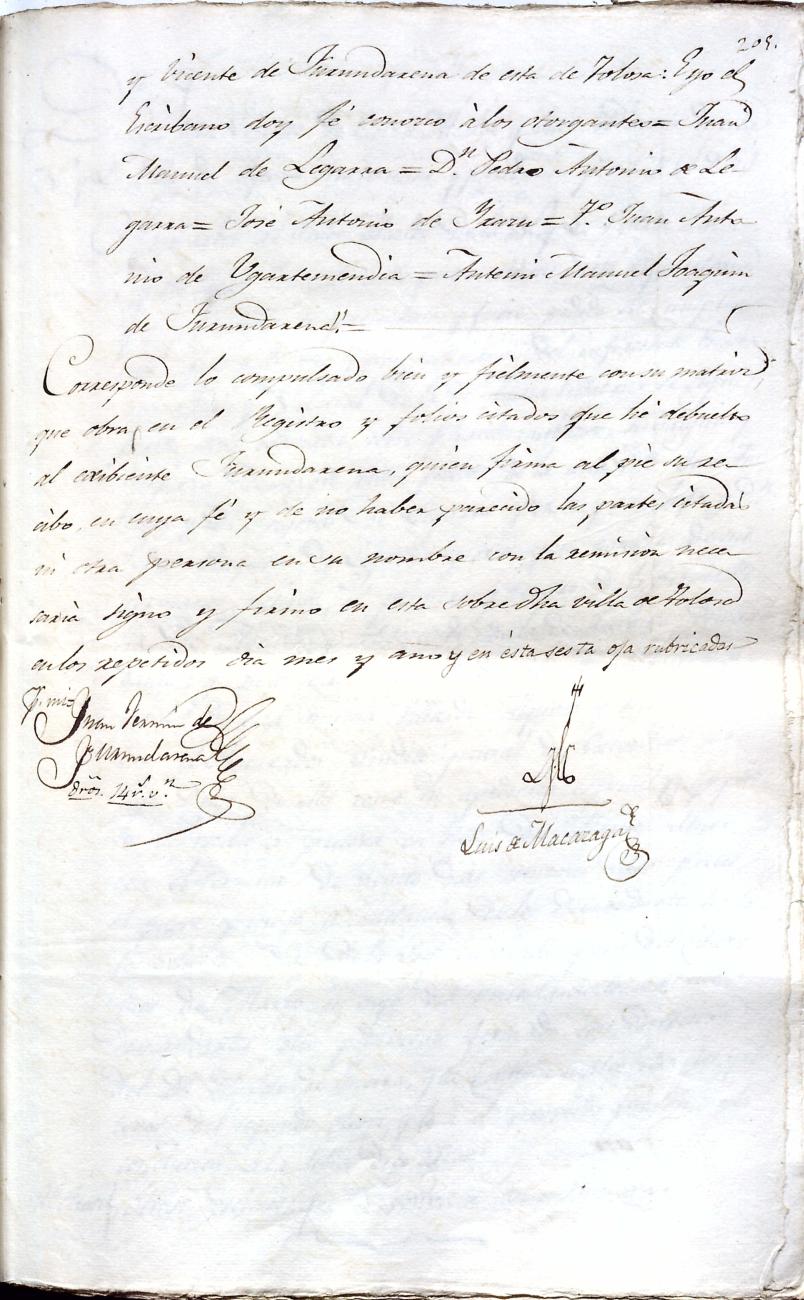 205.
y Vicente de Furundarena de esta de Tolosa: E yo el
Escribano doy fé conozco à los otorgantes = Juan
Manuel de Legarra = D.n Pedro Antonio de Le-
garra = José Antonio de Yrazu = T.o Juan Anto
nio de Ygartemendia = Antemi Manuel Joaquin
de Furundarena =
Corresponde lo compulsado bien y fielmente con su matriz,
que obra, en el Registro y folios citados que hé debuelto
al exibiente Furundarena, quien firma al pie su re-
cibo, en cuya fé y de no haber parecido las partes citadas
ni otra persona en su nombre con la remision nece
saria signo y firmo en esta sobre dha villa de Tolosa
en los repetidos dia mes y año y en ésta sesta oja rubricadas
Juan Fermin de
Furundarena
dros. 14 r.s v.n
Luis de Macazaga